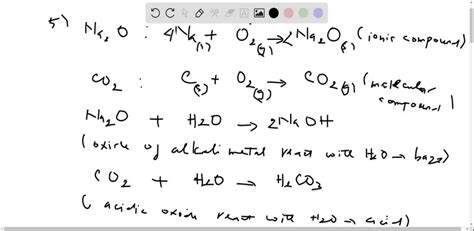 5) Na2O : 4Na(s) + O2(g) → 2Na2O(s) (ionic compound)
CO2 : C(s) + O2(g) → CO2(g) (molecular
compound)
Na2O + H2O → 2NaOH
(oxide of alkali metal react with H2O → base)
CO2 + H2O → H2CO3
(acidic oxide react with H2O → acid)